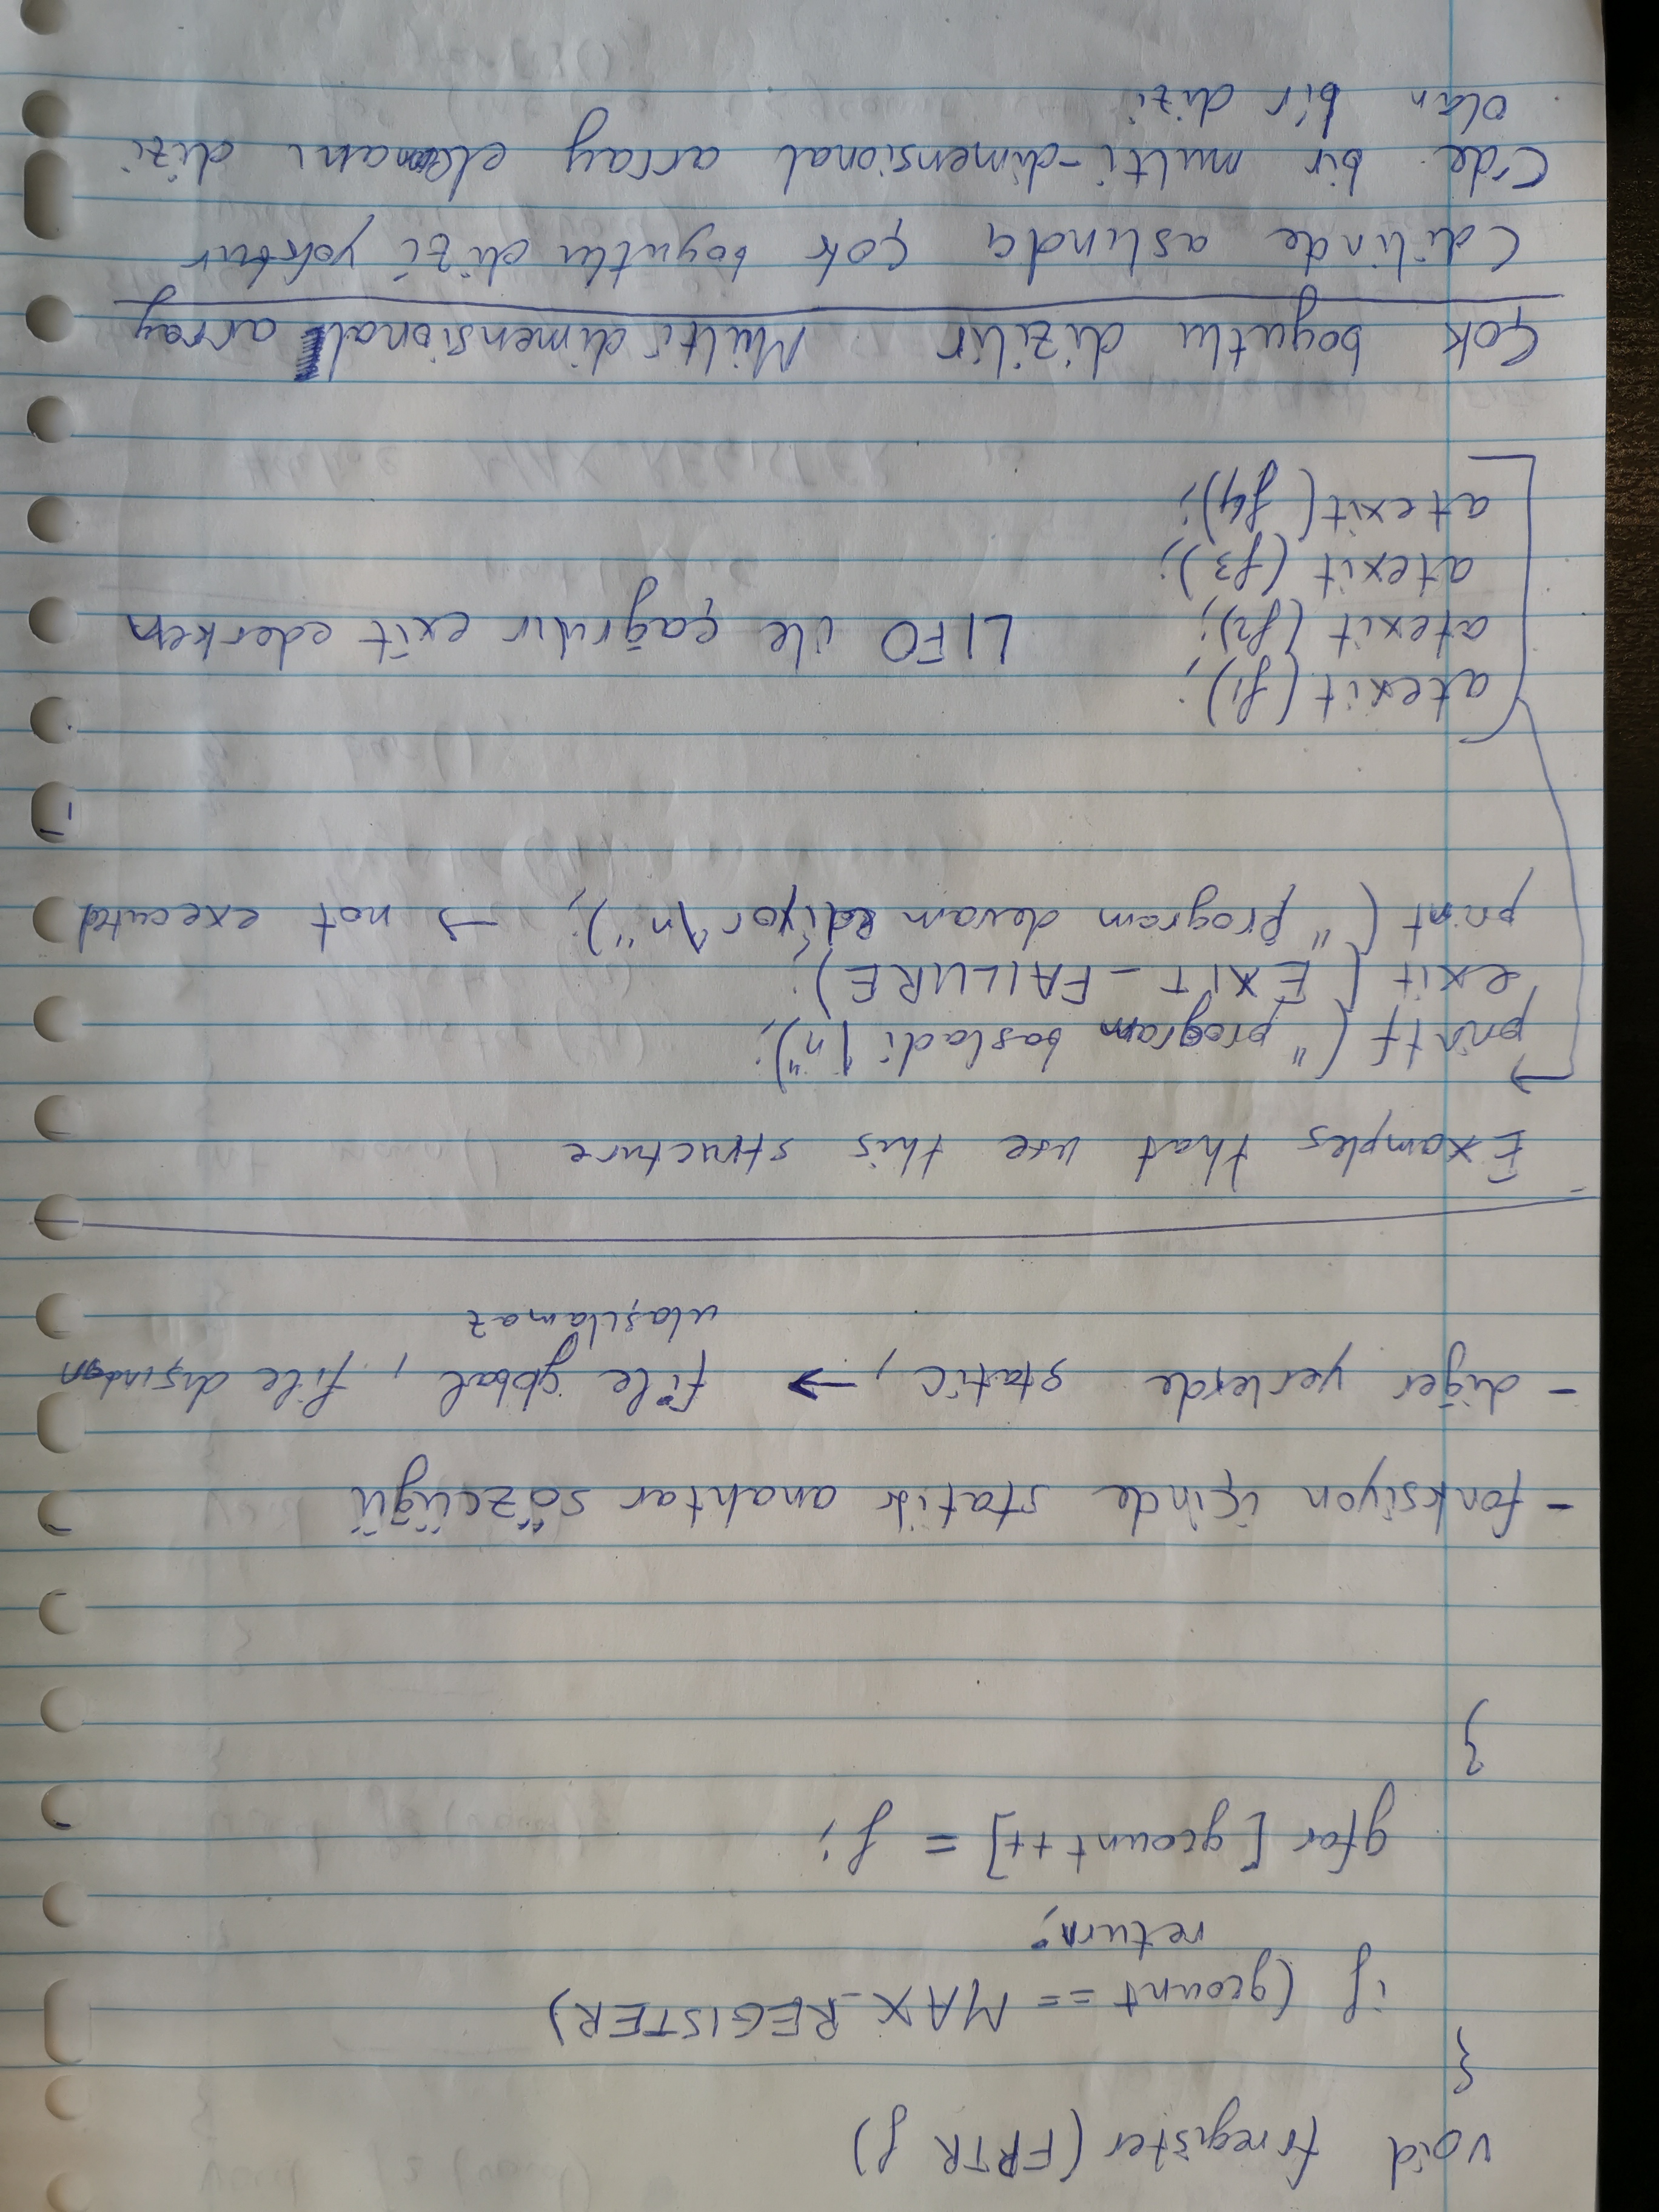 void frregister (FPTR f)
{
if (gcount == MAX_REGISTER)
return;
gfar [gcount ++] = f;
}
- fonksiyon içinde statik anahtar sözcüğü
- diğer yerlerde static, → file global, file dışından
ulaşılamaz
Examples that use this structure
→ printf (" program basladi \n");
exit ( EXIT_FAILURE);
print (" program devam ediyor \n"); → not executed
atexit (f1);
atexit (f2); LIFO ile çağrılır exit ederken
atexit (f3);
atexit( f4);
Çok boyutlu dizilir Multi dimensional array
C dilinde aslında çok boyutlu dizi yoktur
C'de bir multi-dimensional array elemanı dizi
olan bir dizi